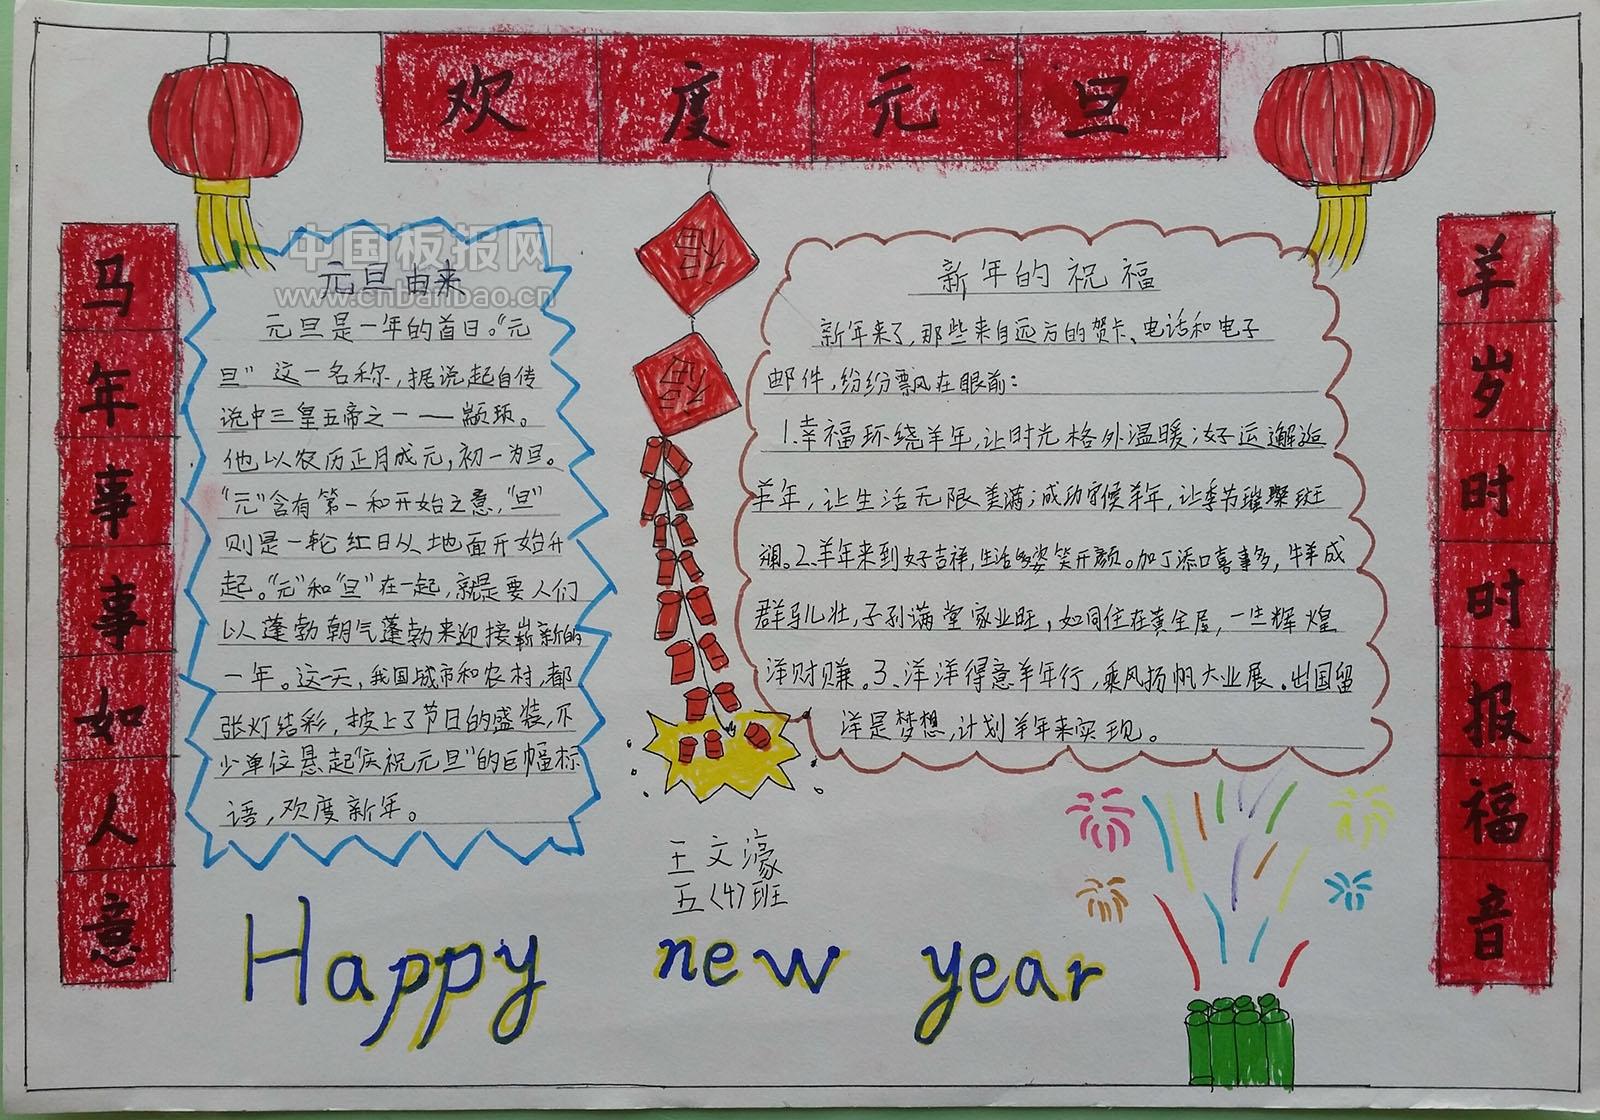 欢度元旦
马年事事如人意
羊岁时时报福音
福
福
中国板报网
www.cnbanbao.cn
元旦由来
元旦是一年的首日。“元
旦”这一名称，据说起自传
说中三皇五帝之一——颛顼。
他以农历正月成元，初一为旦。
“元”含有第一和开始之意，“旦”
则是一轮红日从地面开始升
起。“元”和“旦”在一起，就是要人们
以蓬勃朝气蓬勃来迎接崭新的
一年。这一天，我国城市和农村，都
张灯结彩，披上了节日的盛装，不
少单位悬起“庆祝元旦”的巨幅标
语，欢度新年。
新年的祝福
新年来了，那些来自远方的贺卡、电话和电子
邮件，纷纷飘在眼前：
1.幸福环绕羊年，让时光格外温暖；好运邂逅
羊年，让生活无限美满；成功守候羊年，让季节璀璨斑
斓。2、羊年来到好吉祥，生活多姿笑开颜。加丁添口喜事多，牛羊成
群马儿壮，子孙满堂家业旺，如同住在黄金屋，一生辉煌
洋财赚。3、洋洋得意羊年行，乘风扬帆大业展。出国留
洋是梦想，计划羊年来实现。
王文濠
五〈4〉班
Happy new year